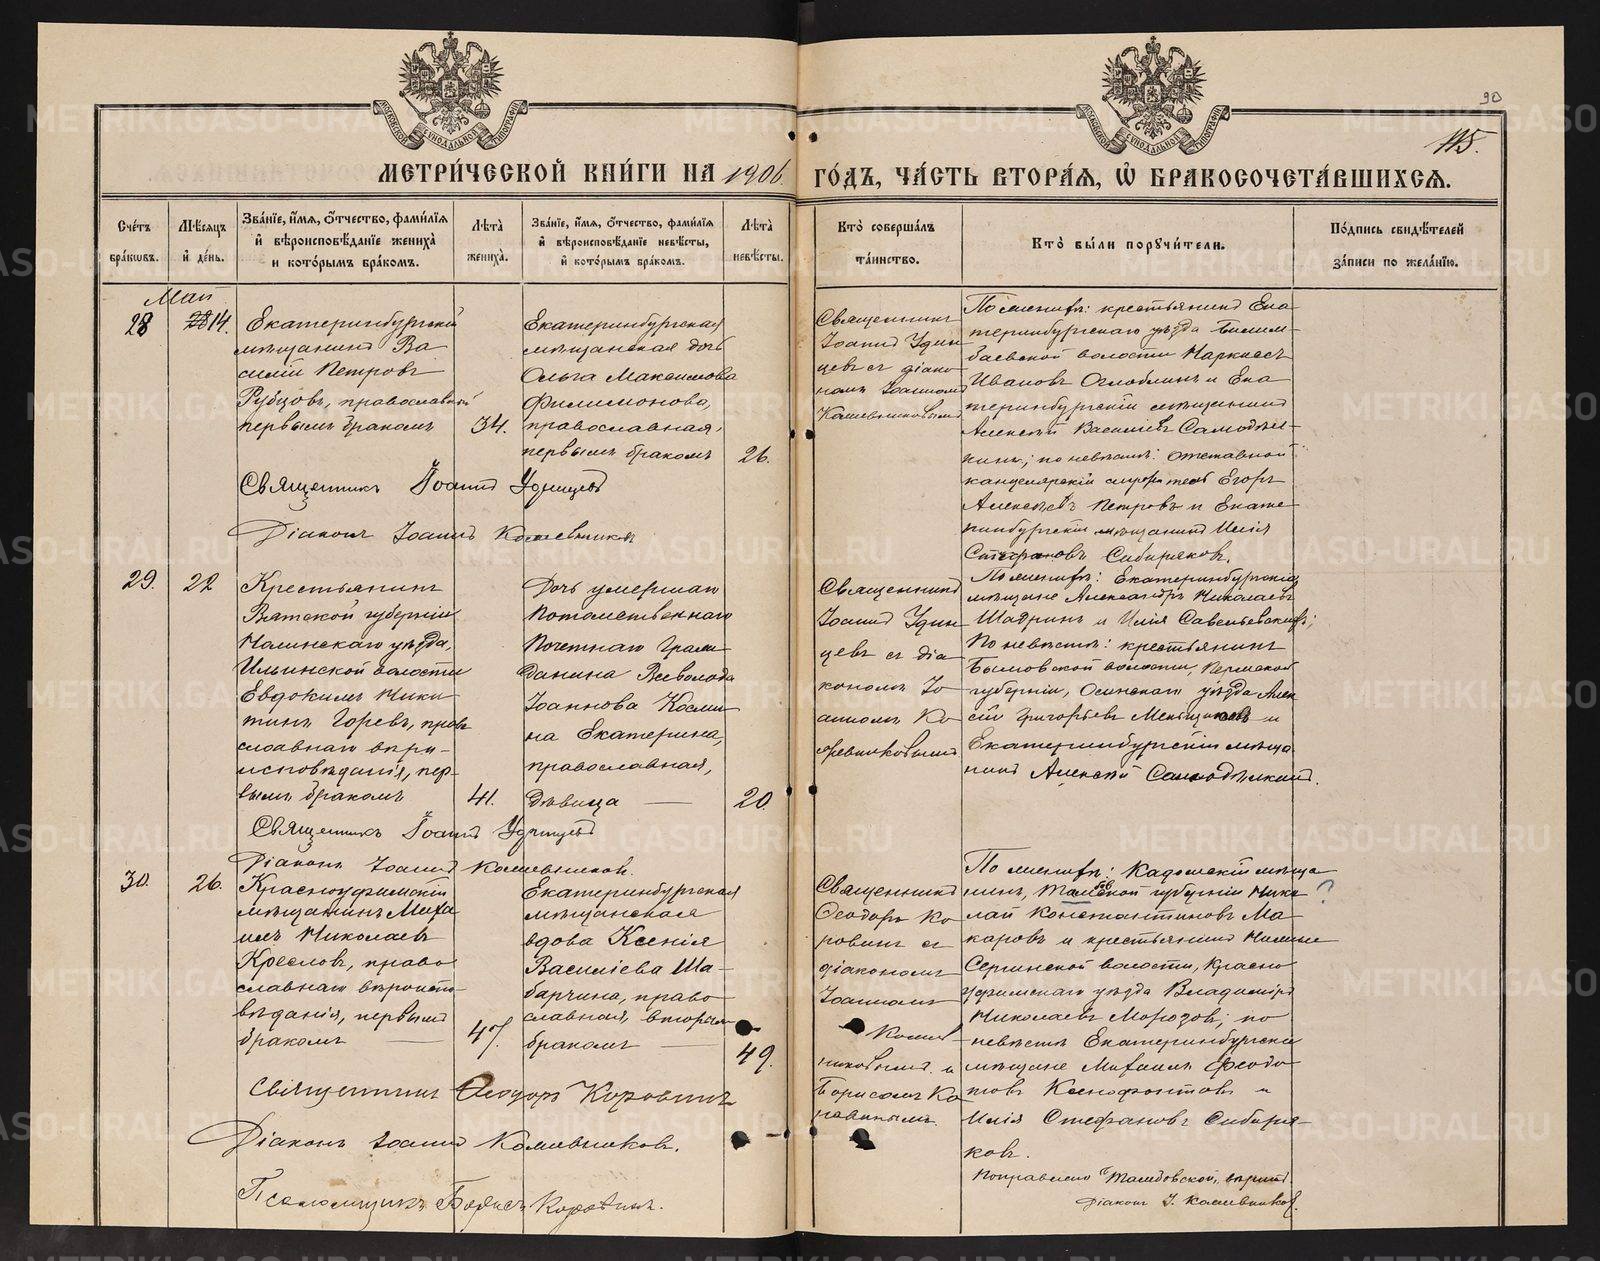 90
115.
МЕТРИ́ЧЕСКОЙ КНИ́ГИ НА 1906
ГО́ДЪ, ЧА́СТЬ ВТОРА́Я, Ѡ БРАКОСОЧЕТА́ВШИХСЯ.
Сче́тъ бра́ковъ.
Мѣ́сяцъ и де́нь.
Зва́нїе, и́мя, о́тчество, фами́лїя
и҆ вѣроисповѣ́данїе жениха̀
и кото́рымъ бра́комъ.
Лѣта̀ жениха̀.
Зва́нїе, и́мя, о́тчество, фами́лїя
и҆ вѣроисповѣ́данїе невѣ́сты,
и҆ кото́рымъ бра́комъ.
Лѣта̀ невѣ́сты.
Кто̀ соверша́лъ
та́инство.
Кто̀ бы́ли порꙋчи́тели.
По́дпись свидѣ́телей
за́писи по жела́нїю.
Май
28
14.
Екатеринбургскій
мѣщанинъ Ва
силій Петровъ
Рубцовъ, православный
первымъ бракомъ
34.
Екатеринбургская
мѣщанская дочь
Ольга Максимова
Филимонова,
православная,
первымъ бракомъ
26.
Священникъ
Іоаннъ Удин
цевъ съ діако
номъ Іоанномъ
Кашевниковымъ
По женихѣ: крестьянинъ Ека
теринбургскаго уѣзда Билим-
баевской волости Маркелъ
Ивановъ Оглоблинъ и Ека
теринбургскій мѣщанинъ
Алексѣй Василіевъ Самодѣл-
кинъ; по невѣстѣ: отставной
канцелярскій служитель Егоръ
Алексѣевъ Петровъ и Екате
ринбургскій мѣщанинъ Илія
Стефановъ Сибиряковъ.
Священникъ Іоаннъ Удинцевъ
Діаконъ Іоаннъ Кашевниковъ
29.
22
Крестьянинъ
Вятской губерніи
Нолинскаго уѣзда,
Ильинской волости
Евдокимъ Ники
тинъ Горевъ, прав
славнаго вѣро-
исповѣданія, пер-
вымъ бракомъ
41.
Дочь умершаго
Потомственнаго
Почетнаго Граж
данина Всеволода
Іоаннова Козми
на Екатерина,
православная,
дѣвица
20.
Священникъ
Іоаннъ Удин
цевъ съ діа
кономъ Іо
анномъ Ка
шевниковымъ
По женихѣ: Екатеринбургскіе
мѣщане Александръ Николаевъ
Шадринъ и Илія Савельевскихъ;
По невѣстѣ: крестьянинъ
Бымовской волости, Пермской
губерніи, Осинскаго уѣзда Алек
сѣй Григорьевъ Меньшиковъ и
Екатеринбургскій мѣща
нинъ Алексѣй Самодѣлкинъ.
Священникъ Іоаннъ Удинцевъ
Діаконъ Іоаннъ Кашевниковъ.
30.
26.
Красноуфимскій
мѣщанинъ Миха
илъ Николаевъ
Креслов, право
славнаго вѣроиспо-
вѣданія, первымъ
бракомъ
47.
Екатеринбургская
мѣщанская
вдова Ксенія
Василіева Ша-
барчина, право
славная, вторымъ
бракомъ
49.
Священникъ
Ѳеодоръ Ко
ровинъ съ
діакономъ
Іоанномъ
Кашев-
никовымъ и
Борисомъ Ко
ровинымъ.
По женихѣ: Кадомскій мѣща
нинъ, Тамбовской губерніи Нико ?
лай Константиновъ Ма
каровъ и крестьянинъ Нижне
Сергинской волости, Красно
уфимскаго уѣзда Владиміръ
Николаевъ Морозовъ; по
невѣстѣ Екатеринбургскіе
мѣщане Михаилъ Ѳеодо
товъ Ксенофонтовъ и
Илія Стефановъ Сибиря-
ковъ.
Поправлено "Тамбовской", вѣрно.
Діаконъ І. Кашевниковъ.
Священникъ Ѳеодоръ Коровинъ
Діаконъ Іоаннъ Кашевниковъ.
Псаломщикъ Борисъ Коровинъ.
METRIKI.GASO-URAL.RU